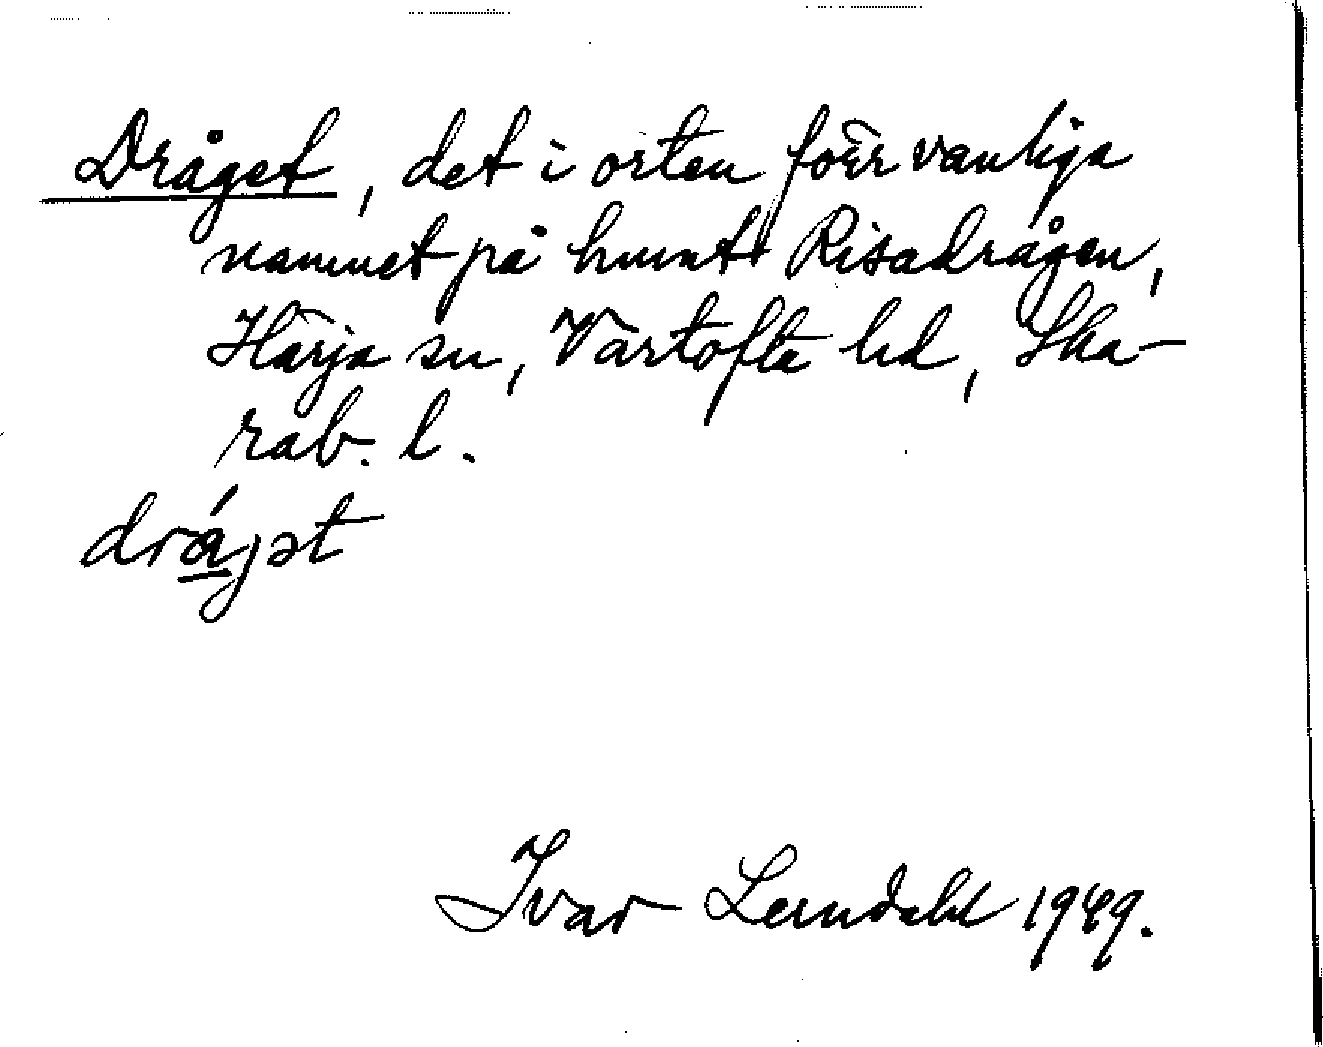 Dråget, det i orten förr vanliga
namnet på hmnt Risadrågen,
Härja sn, Vartofta hd, Ska-
rab. l.
drágət
Ivar Lerndahl 1949.